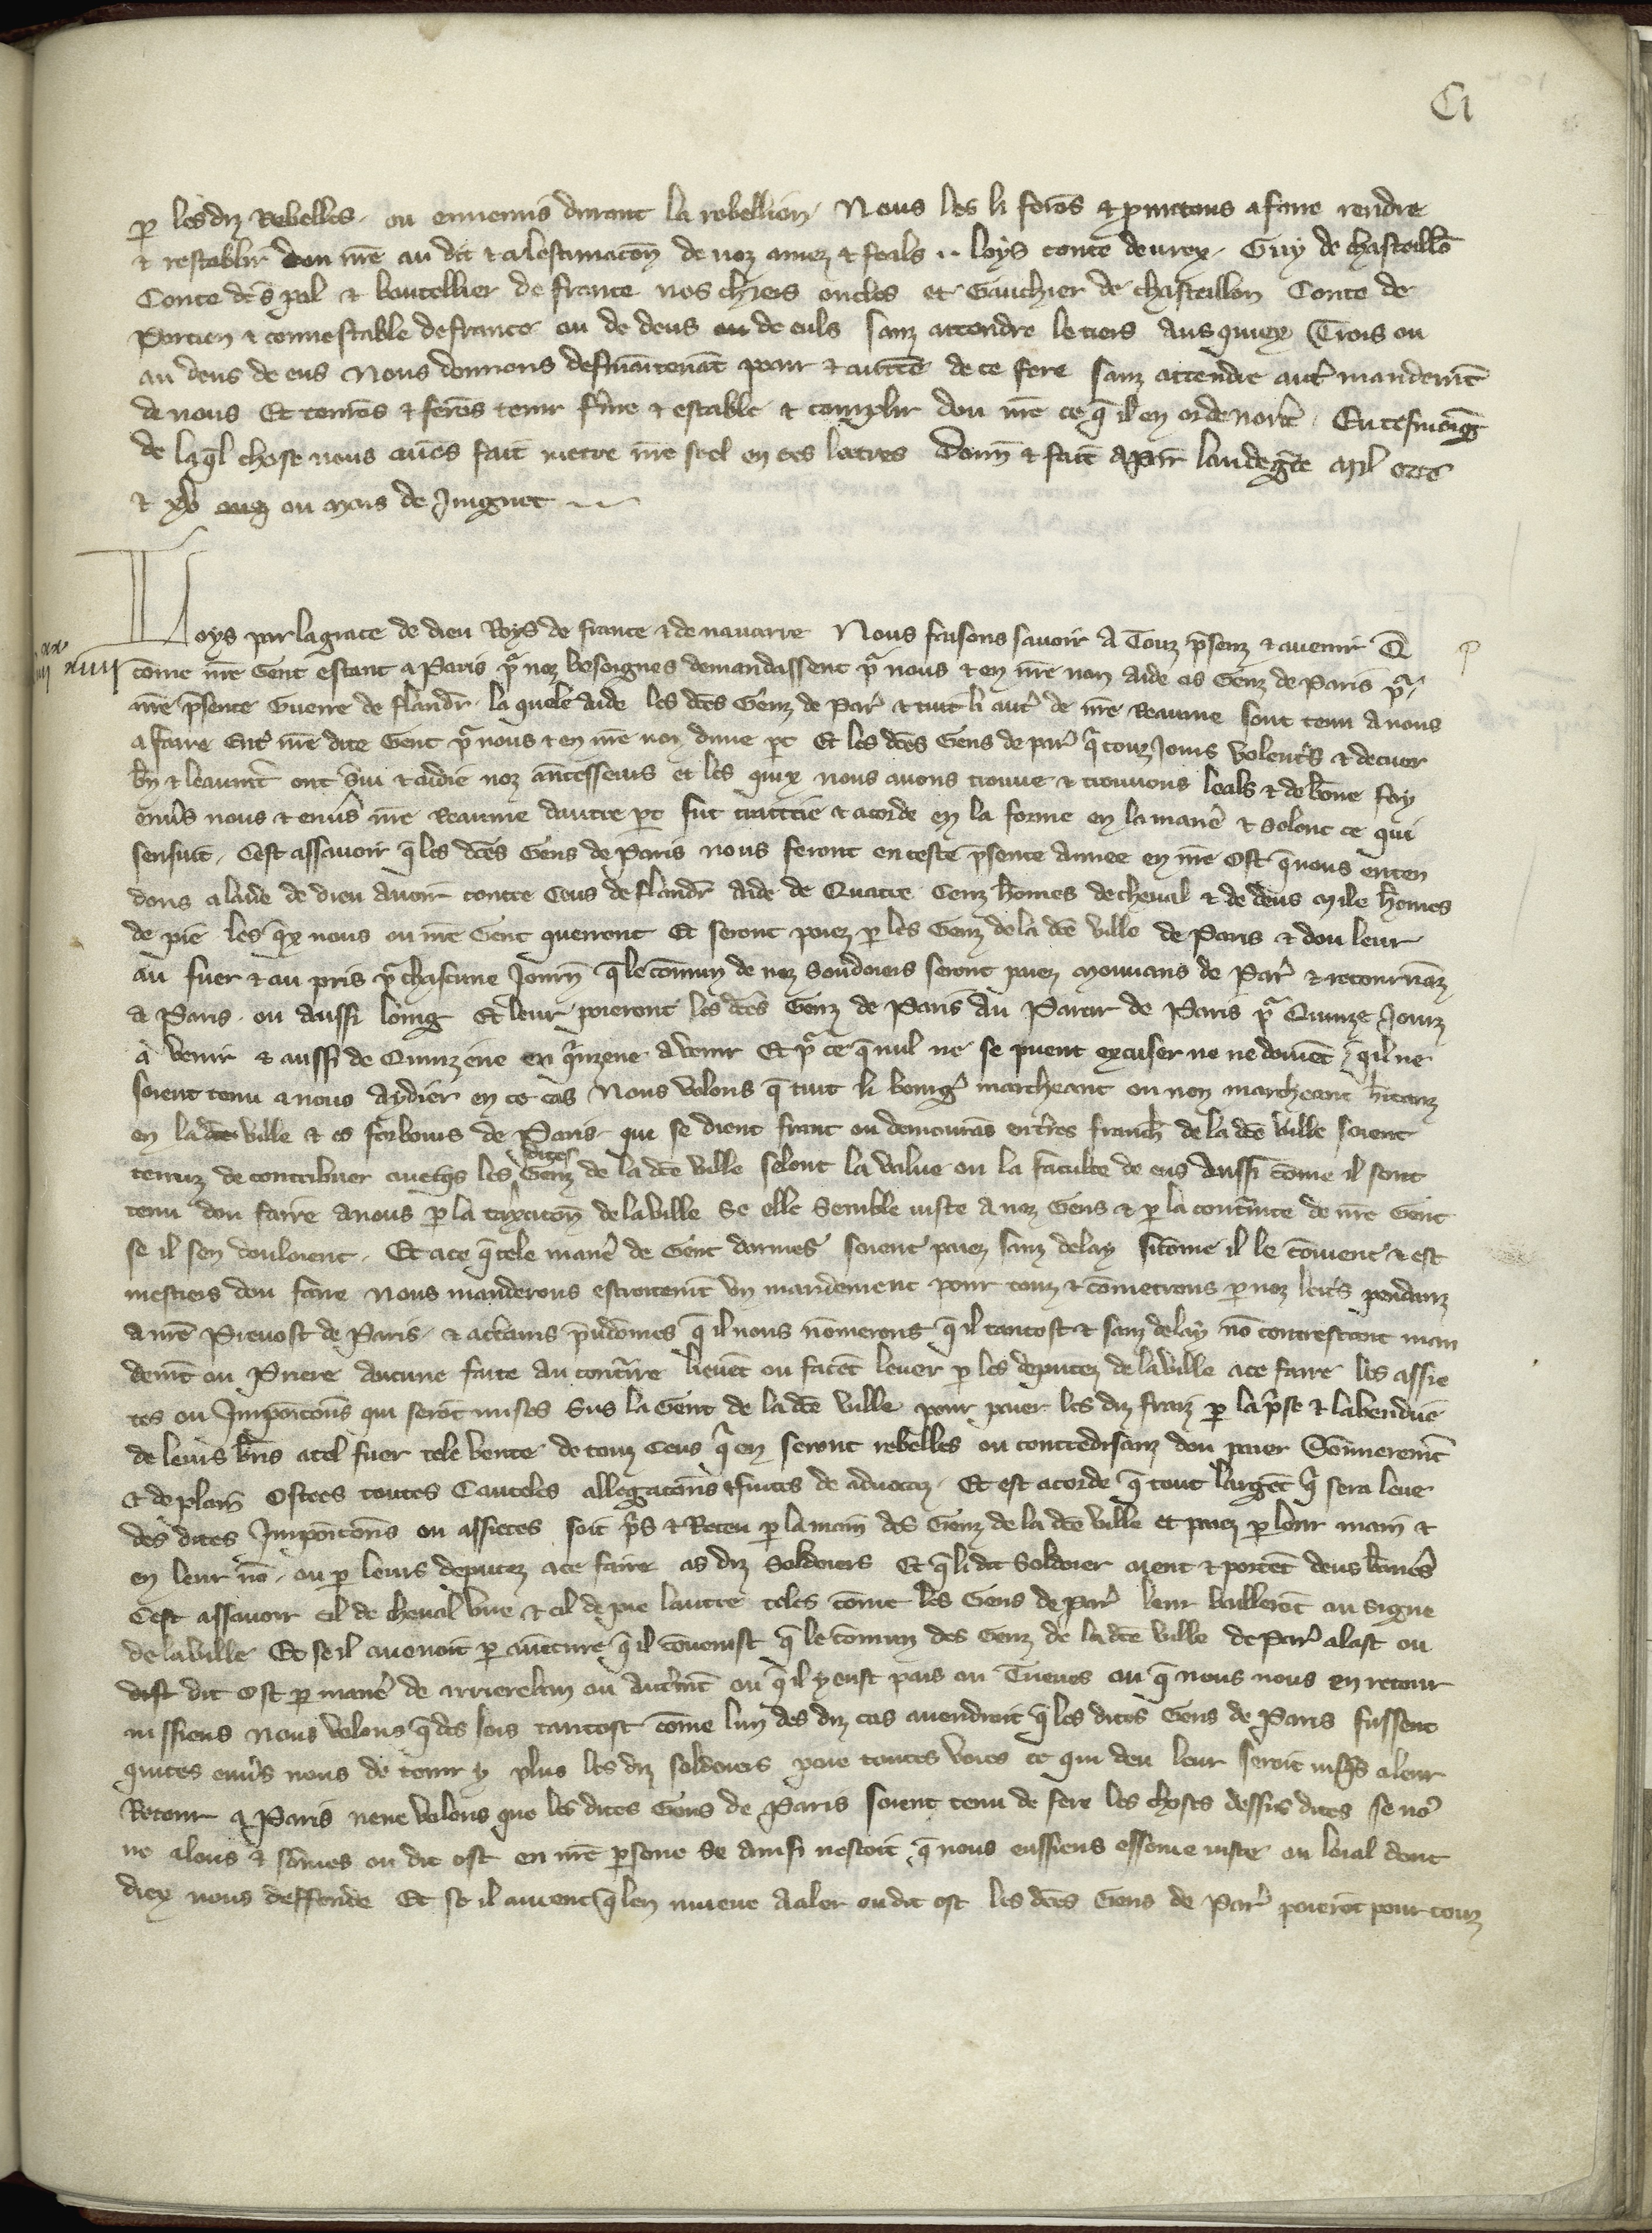 CI
p les diz Rebelles ou ennemis durant la rebellion Nous les li feros & pmetons a faire rendre
& restablir dou nre au dit & a lestimacon de noz amez & feals .. loys conte deurex Guy de chasteillo
Conte de s pal & boutellier de france nos chiers oncles et Gauchier de chasteillon Conte de
Portien & connestable de france ou de deus ou de euls sanz attendre le tiers Aus quiex Trois ou
au deus de eus Nous donnons desmaintenat pooir & auctte de ce fere sanz attendre autr mandemt
de nous Et tenros & feros tenir ferme & estable & complir dou nre ce q il en ordenort En tesmoig
de laql chose nous auos fait metre nre seel en ces lettres Donn & fait a par lan de gce Mil ccc
& xv ou mois de Juignet
Loys par la grace de dieu Roys de france & de nauarre Nous faisons sauoir A Touz psenz & auenir Q
iiii xx xiiii
come nre Gent estant a Paris pr noz besoignes demandassent pr nous & en nre non aide as Genz de Paris pr
nre psente Guerre de flandr la quele aide les dces Genz de Par & tuit li autr de nre Reaume sont tenu a nous
a faire Entr nre dite Gent pr nous & en nre non dune pt Et les dces Gens de par q touz Jours volentrs & de cuer
bn & leaumt ont srui & aidie noz ancesseurs et les quix nous auons trouue & trouuons leals & de bone foy
enurs nous & enurs nre Reaume dautre pt fut traittie & acorde en la forme en la manre & selonc ce qui
sensuit Cest assauoir q les dces Gens de Paris nous feront en ceste psente Annee en nre Ost q nous enten
dons a laide de dieu Auoir contre Ceus de flandr Aide de Quatre Cenz homes de cheual & de deus mile homes
de pie les qx nous ou nre Gent querront Et seront paiez p les Genz de la dce ville de Paris & dou leur
au fuer & au pris pr chascune Journ q le comun de noz soudoiers seront paiez mouuans de Par & retournaz
a Paris ou Aussi loing Et leur paieront les dces Genz de Paris Au Partir de Paris pr Quinze Jourz
a venir & aussi de Quinzene en quinzene avenir Et pr ce q nul ne se puent excuser ne ne doiuet qil ne
soient tenu a nous Aydier en ce cas Nous volons q tuit li bourg marcheant ou non marcheant hitanz
en la dce ville & es forbours de Paris qui se dient franc ou demouras en tres franch de la dce ville soient
tenuz de contribuer auecqs les dites Genz de la dce ville selonc la value ou la faculte de eus Aussi come il sont
tenu dou faire a nous p la taxacon de la ville Se elle semble iuste A noz Gens & p la contrainte de nre Gent
se il sen douloient Et a ce q tele manre de Gent darmes soient paiez sanz delay sicome il le couient & est
mestiers dou faire Nous manderons estroitemt un mandement pour touz & cometrons p noz lettrs pendanz
a nre Preuost de Paris & a ctains prudomes q il nous nomerons q il tantost & sanz delay no contrestant man
demt ou Priere Aucune faite au contraire lieuet ou facet leuer p les deputez de la ville a ce faire les assie
tes ou Imposicons qui serot mises Sus la Gent de la dce ville pour paier les diz fraiz p la prse & la vendue
de leurs bns a tel fuer tele vente de touz Ceus q en seront rebelles ou contredisanz dou paier Sommeremt
& de plain Ostees toutes Cauteles allegacons & fuites de aduocaz Et est acorde q tout largent q sera leue
des dites Imposicons ou assietes soit prs & Receu p la main des Genz de la dce ville et paiez p leur main &
en leur no ou p leurs deputez a ce faire as diz Soldoiers Et q li dit Soldoier aient & portet deus banires
Cest assauoir cil de cheual vne & cil de pie lautre teles come les Gens de Par leur baillerot au signe
de la ville Et se il auenoit p auenture q il couenist q le comun des Genz de la dce ville de Par alast ou
dit Ost p manre de arriereban ou Autrmt ou q il y eust pais ou Trieues ou q nous nous en retour
nissiens Nous volons q des lors tantost come lun des diz cas auendroit q les dites Gens de Paris fussent
quites enurs nous de tenir y plus les diz soldoiers paie toutes voies ce qui deu leur seroit iusqs a leur
Retour a Paris ne ne volons que les dites Gens de Paris soient tenu de fere les choses dessus dites se no
ne alons & somes ou dit ost en nre psone Se ainsi nestoit q nous eussiens essoine iuste ou loial dont
diex nous deffende Et se il auient q len mueue A aler ou dit ost les dces Gens de Par paierot pour touz